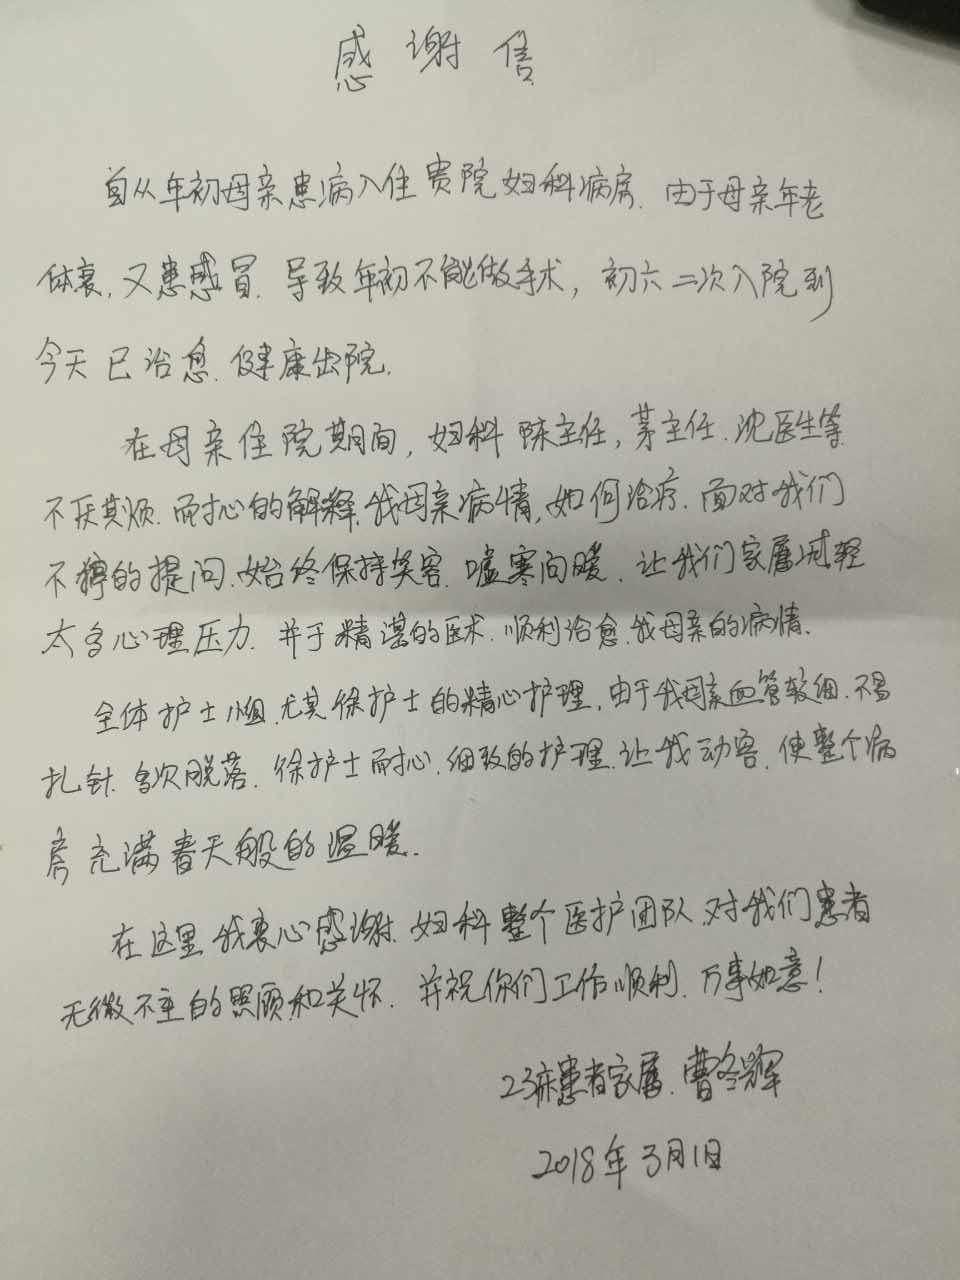 感谢信
自从年初母亲患病入住贵院妇科病房.由于母亲年老
体衰,又患感冒.导致年初不能做手术,初六二次入院到
今天已治愈.健康出院.
在母亲住院期间,妇科陈主任,茅主任.沈医生等
不厌其烦.而耐心的解释.我母亲病情,如何治疗.面对我们
不停的提问.始终保持笑容.嘘寒问暖.让我们家属减轻
太多心理压力.并于精湛的医术.顺利治愈.我母亲的病情.
全体护士小组.尤其徐护士的精心护理.由于我母亲血管较细.不易
扎针.多次脱落.徐护士耐心.细致的护理.让我动容.使整个病
房充满春天般的温暖.
在这里.我衷心感谢.妇科整个医护团队.对我们患者
无微不至的照顾和关怀.并祝你们工作顺利.万事如意!
23床患者家属.曹冬辉
2018年3月1日